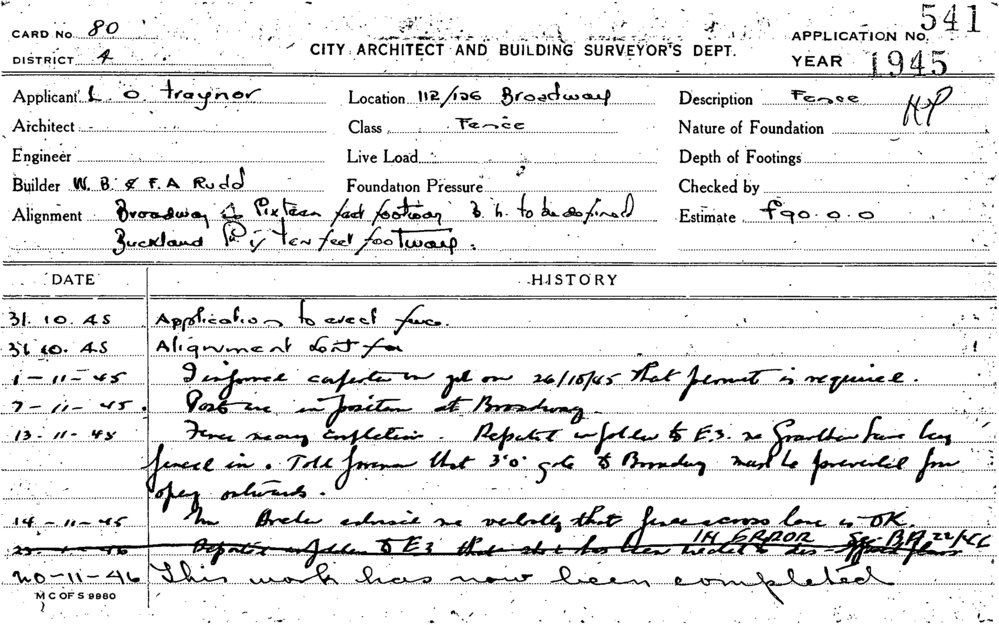 CARD No. 80
DISTRICT 4
CITY ARCHITECT AND BUILDING SURVEYOR'S DEPT.
APPLICATION No. 541
YEAR 1945
Applicant L. O. Traynor
Location 112/126 Broadway
Description Fence
HP
Architect
Class Fence
Nature of Foundation
Engineer
Live Load
Depth of Footings
Builder W. B. & F. A Rudd
Foundation Pressure
Checked by
Alignment Broadway feet footway B. L. to be defined
Estimate £90.0.0
Buckland ten feet footway.
DATE
HISTORY
31.10.45 Application to erect fence.
31.10.45 Alignment sent for
1-11-45 I informed carpenter on job on 26/10/45 that permit is required.
7-11-45. Posts are in position at Broadway.
13-11-45 Fence nearing completion. Reported in folder to E.3. re being
fenced in. Told foreman that 3'0" gate to Broadway must be prevented from
opening outwards.
14-11-45 Mr advised me verbally that fence across lane is OK.
IN ERROR See B.A. 22/46
Reported in folder to E3 that has been
20-11-46 This work has now been completed
M C OF S 9980